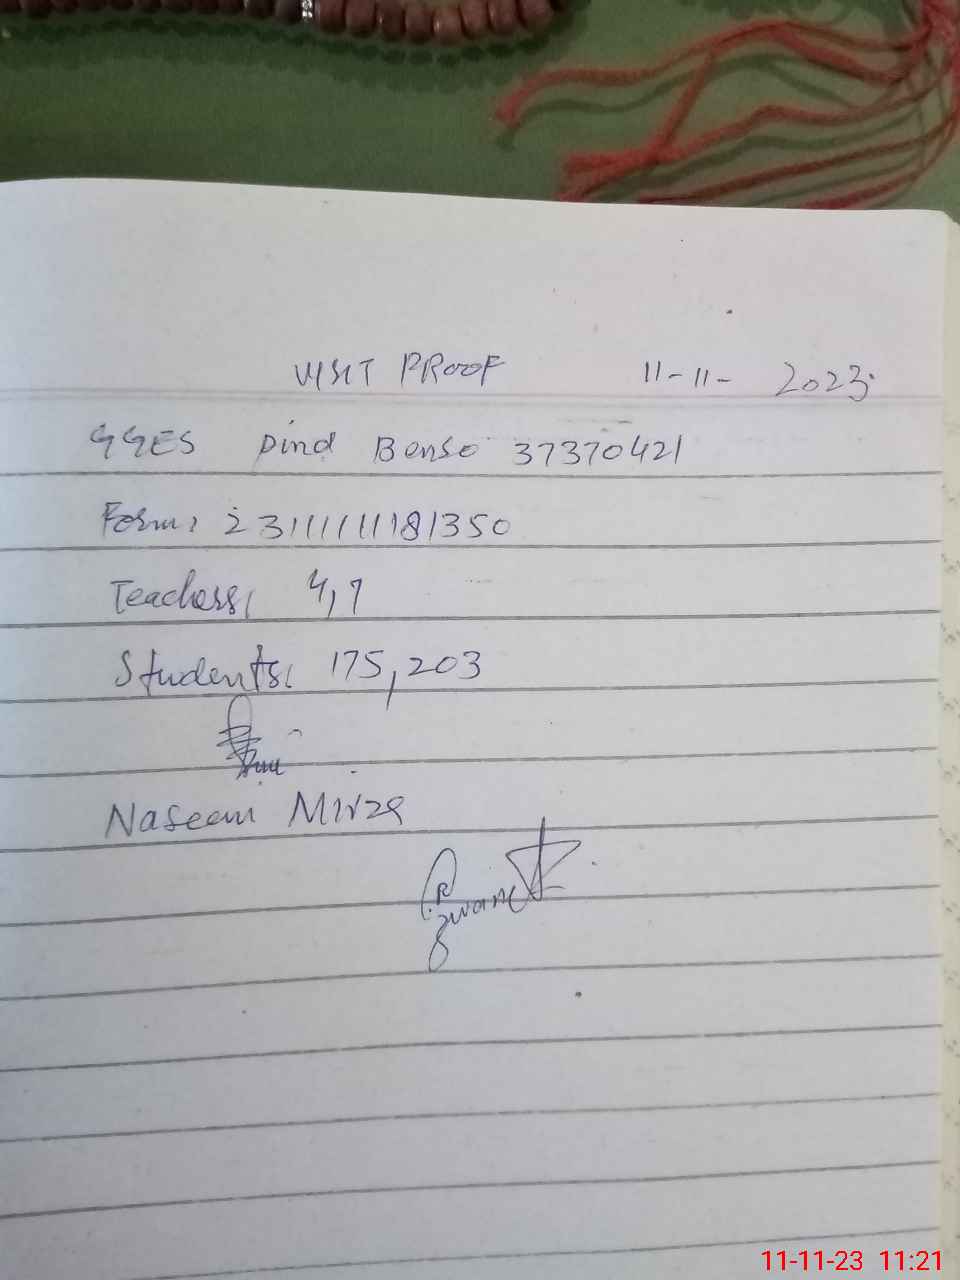 VISIT PROOF 11-11-2023
GGES Pind Benso 37370421
Form: 23111111181350
Teachers: 4,7
Students: 175,203
Naseem Mirza
11-11-23 11:21